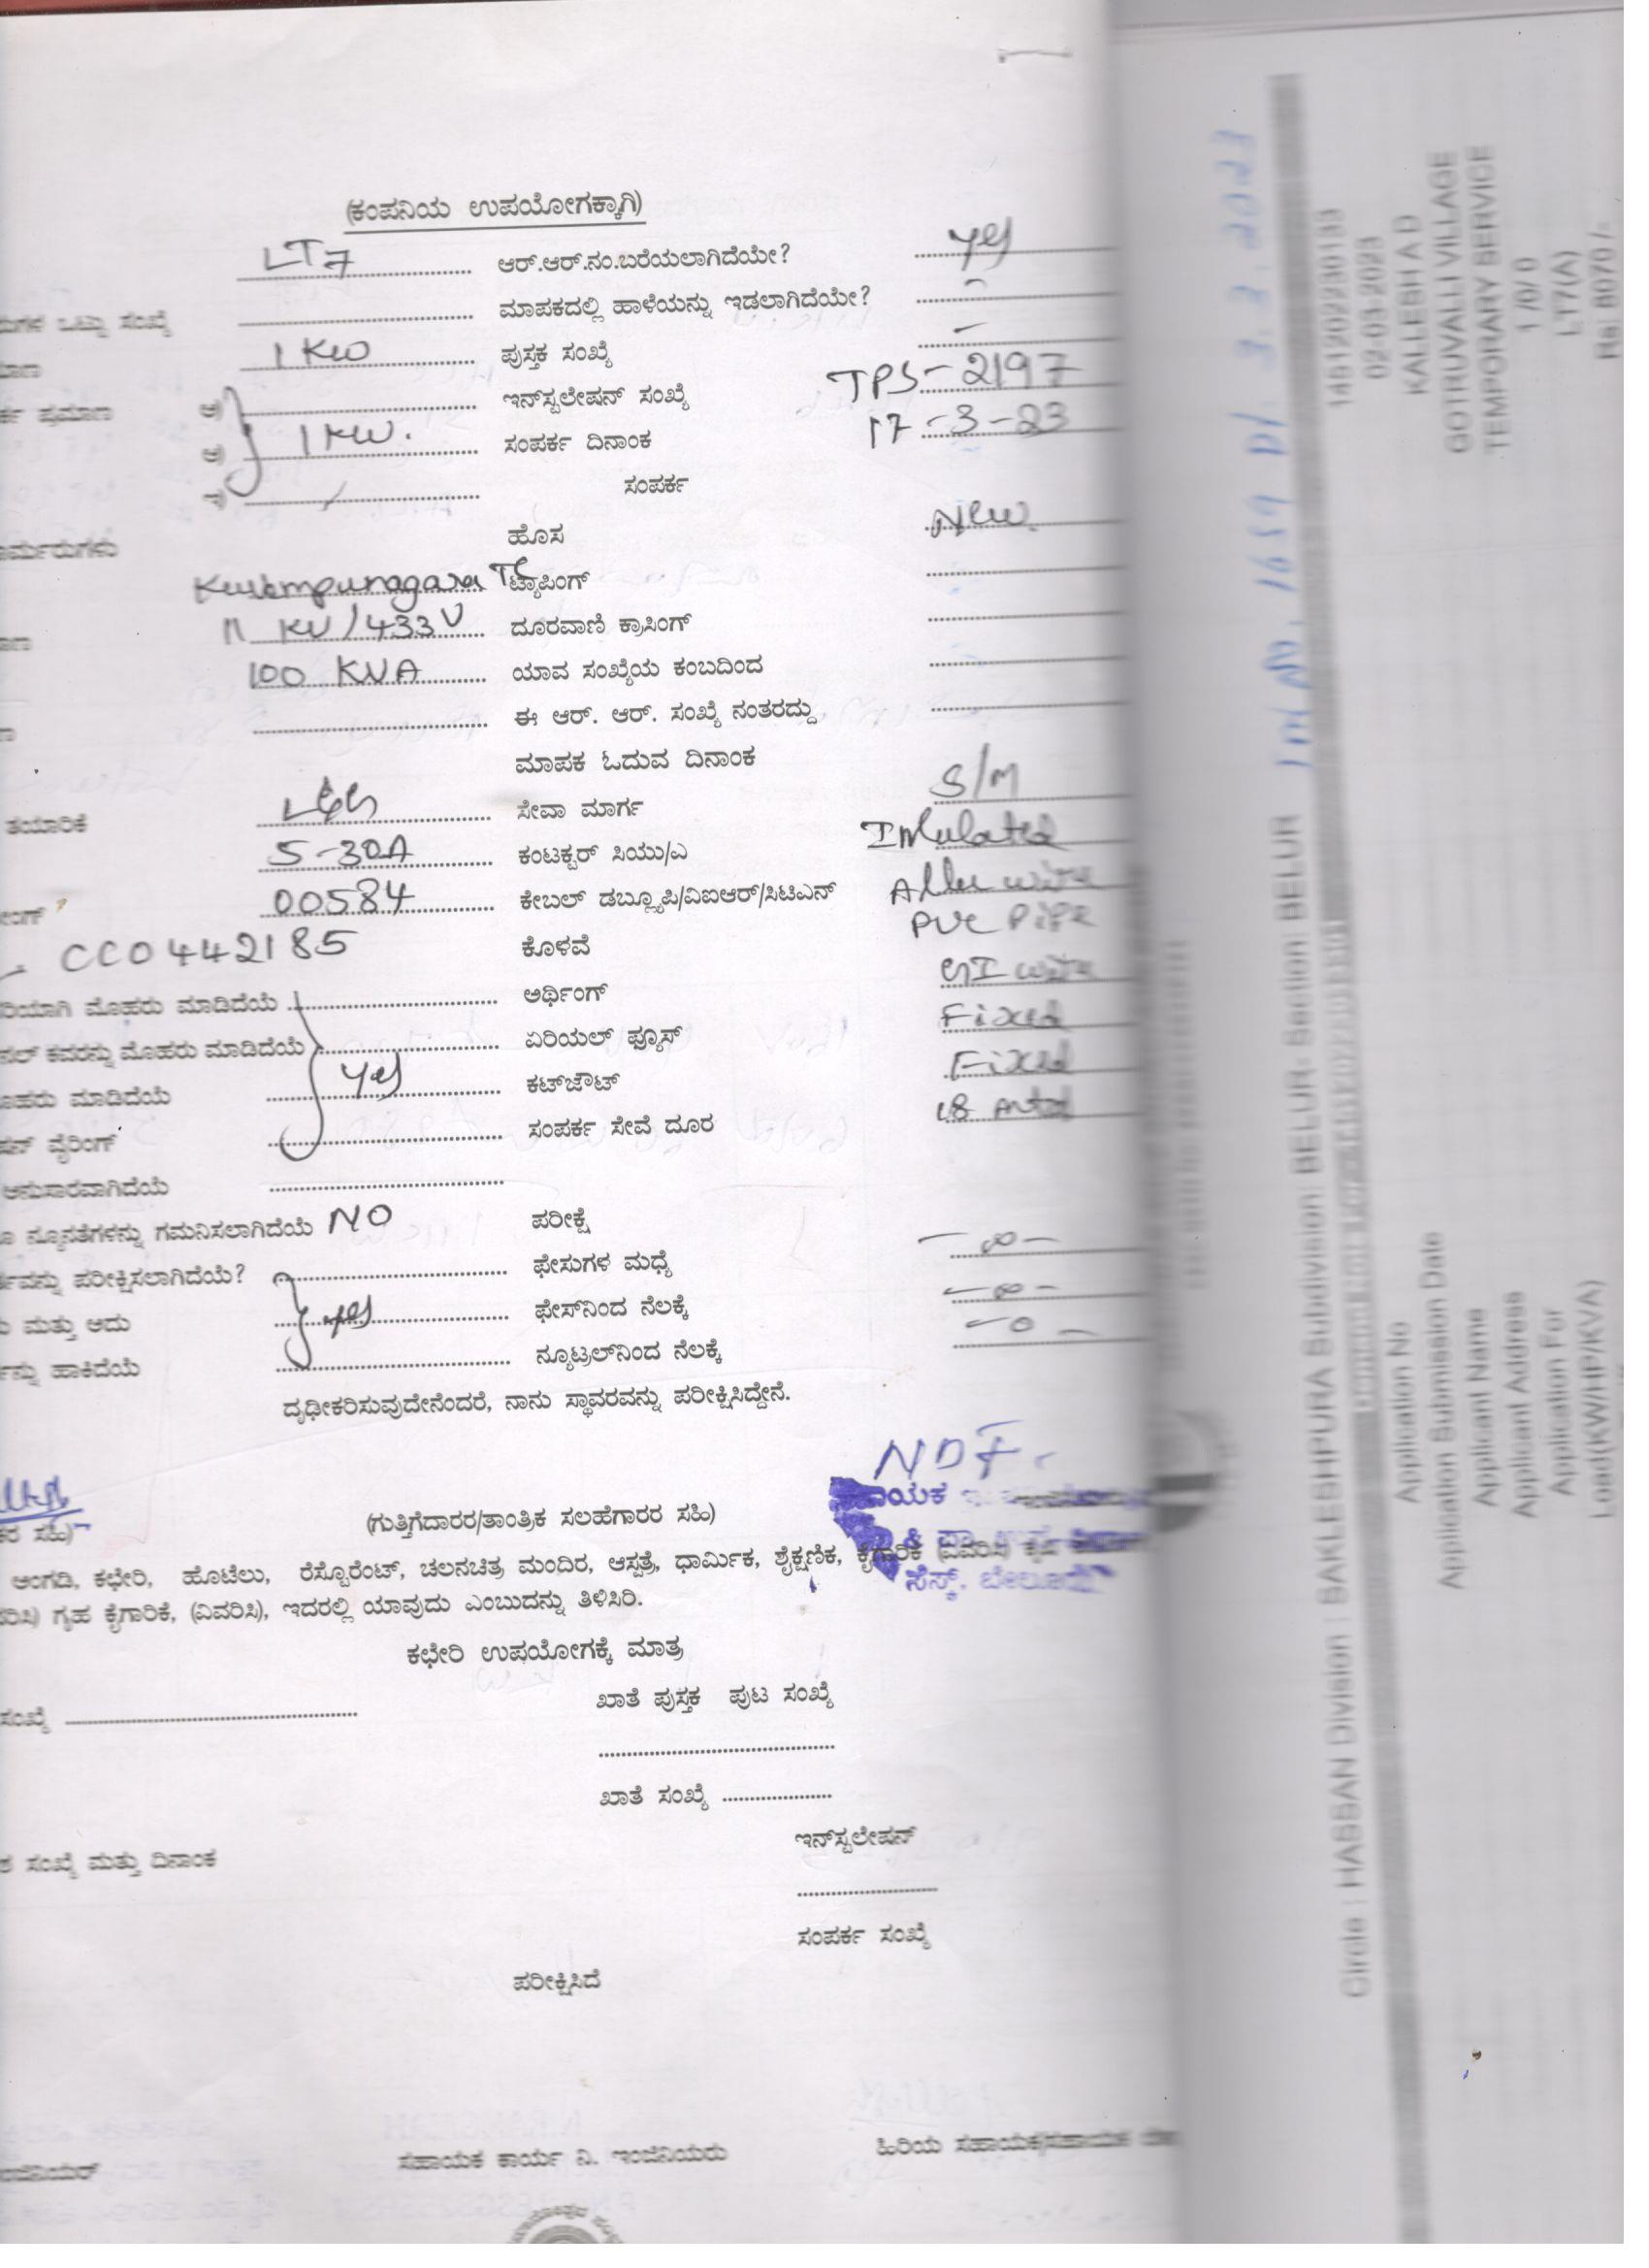 (ಕಂಪನಿಯ ಉಪಯೋಗಕ್ಕಾಗಿ)
LT7 ಆರ್.ಆರ್.ನಂ.ಬರೆಯಲಾಗಿದೆಯೇ? yes
ಒಟ್ಟು ಸಂಖ್ಯೆ ಮಾಪಕದಲ್ಲಿ ಹಾಳೆಯನ್ನು ಇಡಲಾಗಿದೆಯೇ? -
1 KW ಪುಸ್ತಕ ಸಂಖ್ಯೆ -
ಪ್ರಮಾಣ ಅ) ಇನ್‌ಸ್ಟಲೇಷನ್ ಸಂಖ್ಯೆ TPS-2197
ಆ) 1 KW. ಸಂಪರ್ಕ ದಿನಾಂಕ 17-3-23
ಇ) ಸಂಪರ್ಕ
ಹೊಸ New
Kuvempunagara TC ಟ್ಯಾಪಿಂಗ್
11 KV/433V ದೂರವಾಣಿ ಕ್ರಾಸಿಂಗ್
100 KVA ಯಾವ ಸಂಖ್ಯೆಯ ಕಂಬದಿಂದ
ಈ ಆರ್. ಆರ್. ಸಂಖ್ಯೆ ನಂತರದ್ದು
ಮಾಪಕ ಓದುವ ದಿನಾಂಕ
ತಯಾರಿಕೆ L&G ಸೇವಾ ಮಾರ್ಗ S/M
5-30A ಕಂಟಕ್ಟರ್ ಸಿಯು/ಎ Insulated
00584 ಕೇಬಲ್ ಡಬ್ಲ್ಯೂಪಿ/ವಿಐಆರ್/ಸಿಟಿಎನ್ with
CC0442185 ಕೊಳವೆ PVC Pipe
ಮೊಹರು ಮಾಡಿದೆಯೆ ಅರ್ಥಿಂಗ್ GI wire
ಕವರನ್ನು ಮೊಹರು ಮಾಡಿದೆಯೆ ಏರಿಯಲ್ ಫ್ಯೂಸ್ Fixed
ಮಾಡಿದೆಯೆ yes ಕಟ್‌ಜೌಟ್ Fixed
ವೈರಿಂಗ್ ಸಂಪರ್ಕ ಸೇವೆ ದೂರ 18
ಅನುಸಾರವಾಗಿದೆಯೆ
ನ್ಯೂನತೆಗಳನ್ನು ಗಮನಿಸಲಾಗಿದೆಯೆ NO ಪರೀಕ್ಷೆ
ಪರೀಕ್ಷಿಸಲಾಗಿದೆಯೆ? ಫೇಸುಗಳ ಮಧ್ಯೆ - ∞ -
ಮತ್ತು ಅದು yes ಫೇಸ್‌ನಿಂದ ನೆಲಕ್ಕೆ - ∞ -
ಹಾಕಿದೆಯೆ ನ್ಯೂಟ್ರಲ್‌ನಿಂದ ನೆಲಕ್ಕೆ - 0 -
ದೃಢೀಕರಿಸುವುದೇನೆಂದರೆ, ನಾನು ಸ್ಥಾವರವನ್ನು ಪರೀಕ್ಷಿಸಿದ್ದೇನೆ.
NDF
ಸಹಿ) (ಗುತ್ತಿಗೆದಾರರ/ತಾಂತ್ರಿಕ ಸಲಹೆಗಾರರ ಸಹಿ)
ಸೆಸ್ಕ್, ಬೇಲೂರು
ಅಂಗಡಿ, ಕಛೇರಿ, ಹೊಟೆಲು, ರೆಸ್ಟೊರೆಂಟ್, ಚಲನಚಿತ್ರ ಮಂದಿರ, ಆಸ್ಪತ್ರೆ, ಧಾರ್ಮಿಕ, ಶೈಕ್ಷಣಿಕ, ಕೈಗಾರಿಕೆ (ವಿವರಿಸಿ)
ಗೃಹ ಕೈಗಾರಿಕೆ, (ವಿವರಿಸಿ), ಇದರಲ್ಲಿ ಯಾವುದು ಎಂಬುದನ್ನು ತಿಳಿಸಿರಿ.
ಕಛೇರಿ ಉಪಯೋಗಕ್ಕೆ ಮಾತ್ರ
ಸಂಖ್ಯೆ ಖಾತೆ ಪುಸ್ತಕ ಪುಟ ಸಂಖ್ಯೆ
ಖಾತೆ ಸಂಖ್ಯೆ
ಇನ್‌ಸ್ಟಲೇಷನ್
ಸಂಖ್ಯೆ ಮತ್ತು ದಿನಾಂಕ
ಸಂಪರ್ಕ ಸಂಖ್ಯೆ
ಪರೀಕ್ಷಿಸಿದೆ
ಸಹಾಯಕ ಕಾರ್ಯ ನಿ. ಇಂಜಿನಿಯರು ಹಿರಿಯ ಸಹಾಯಕ/ಸಹಾಯಕ
1659 3.3.2023
Circle : HASSAN Division : SAKLESHPURA Subdivision BELUR- Section BELUR
Application No 14512022230133
Application Submission Date 02-03-2023
Applicant Name KALLESH A D
Applicant Address GOTRUVALLI VILLAGE
Application For TEMPORARY SERVICE
Load(KW/HP/KVA) 1 /0/ 0
LT7(A)
Rs: 8070 /-